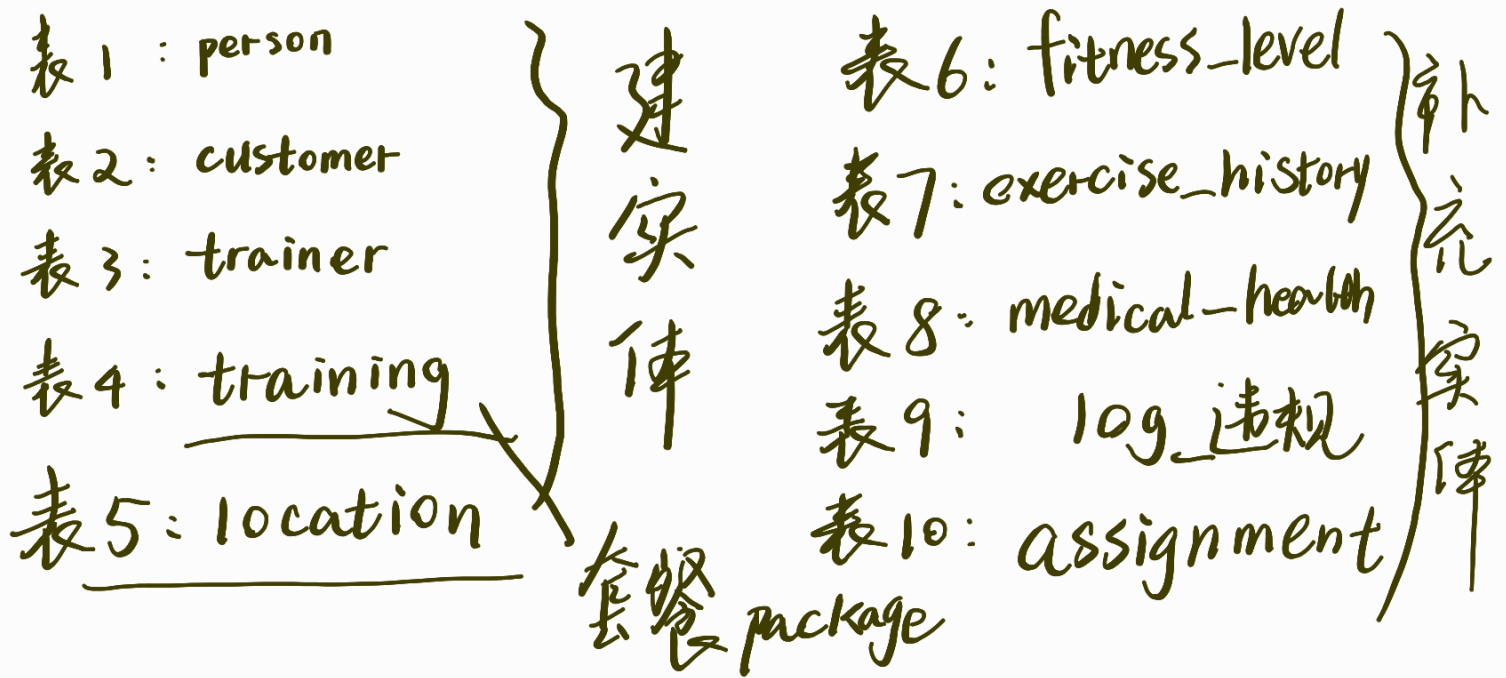 表1：person
表2：customer
表3：trainer
表4：training
表5：location
建实体
套餐package
表6：fitness_level
表7：exercise_history
表8：medical_health
表9：log_违规
表10：assignment
补充实体